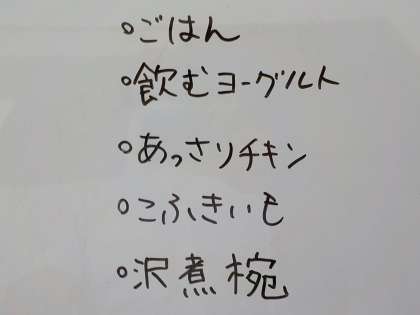 ○ごはん
○飲むヨーグルト
○あっさりチキン
○こふきいも
○沢煮椀